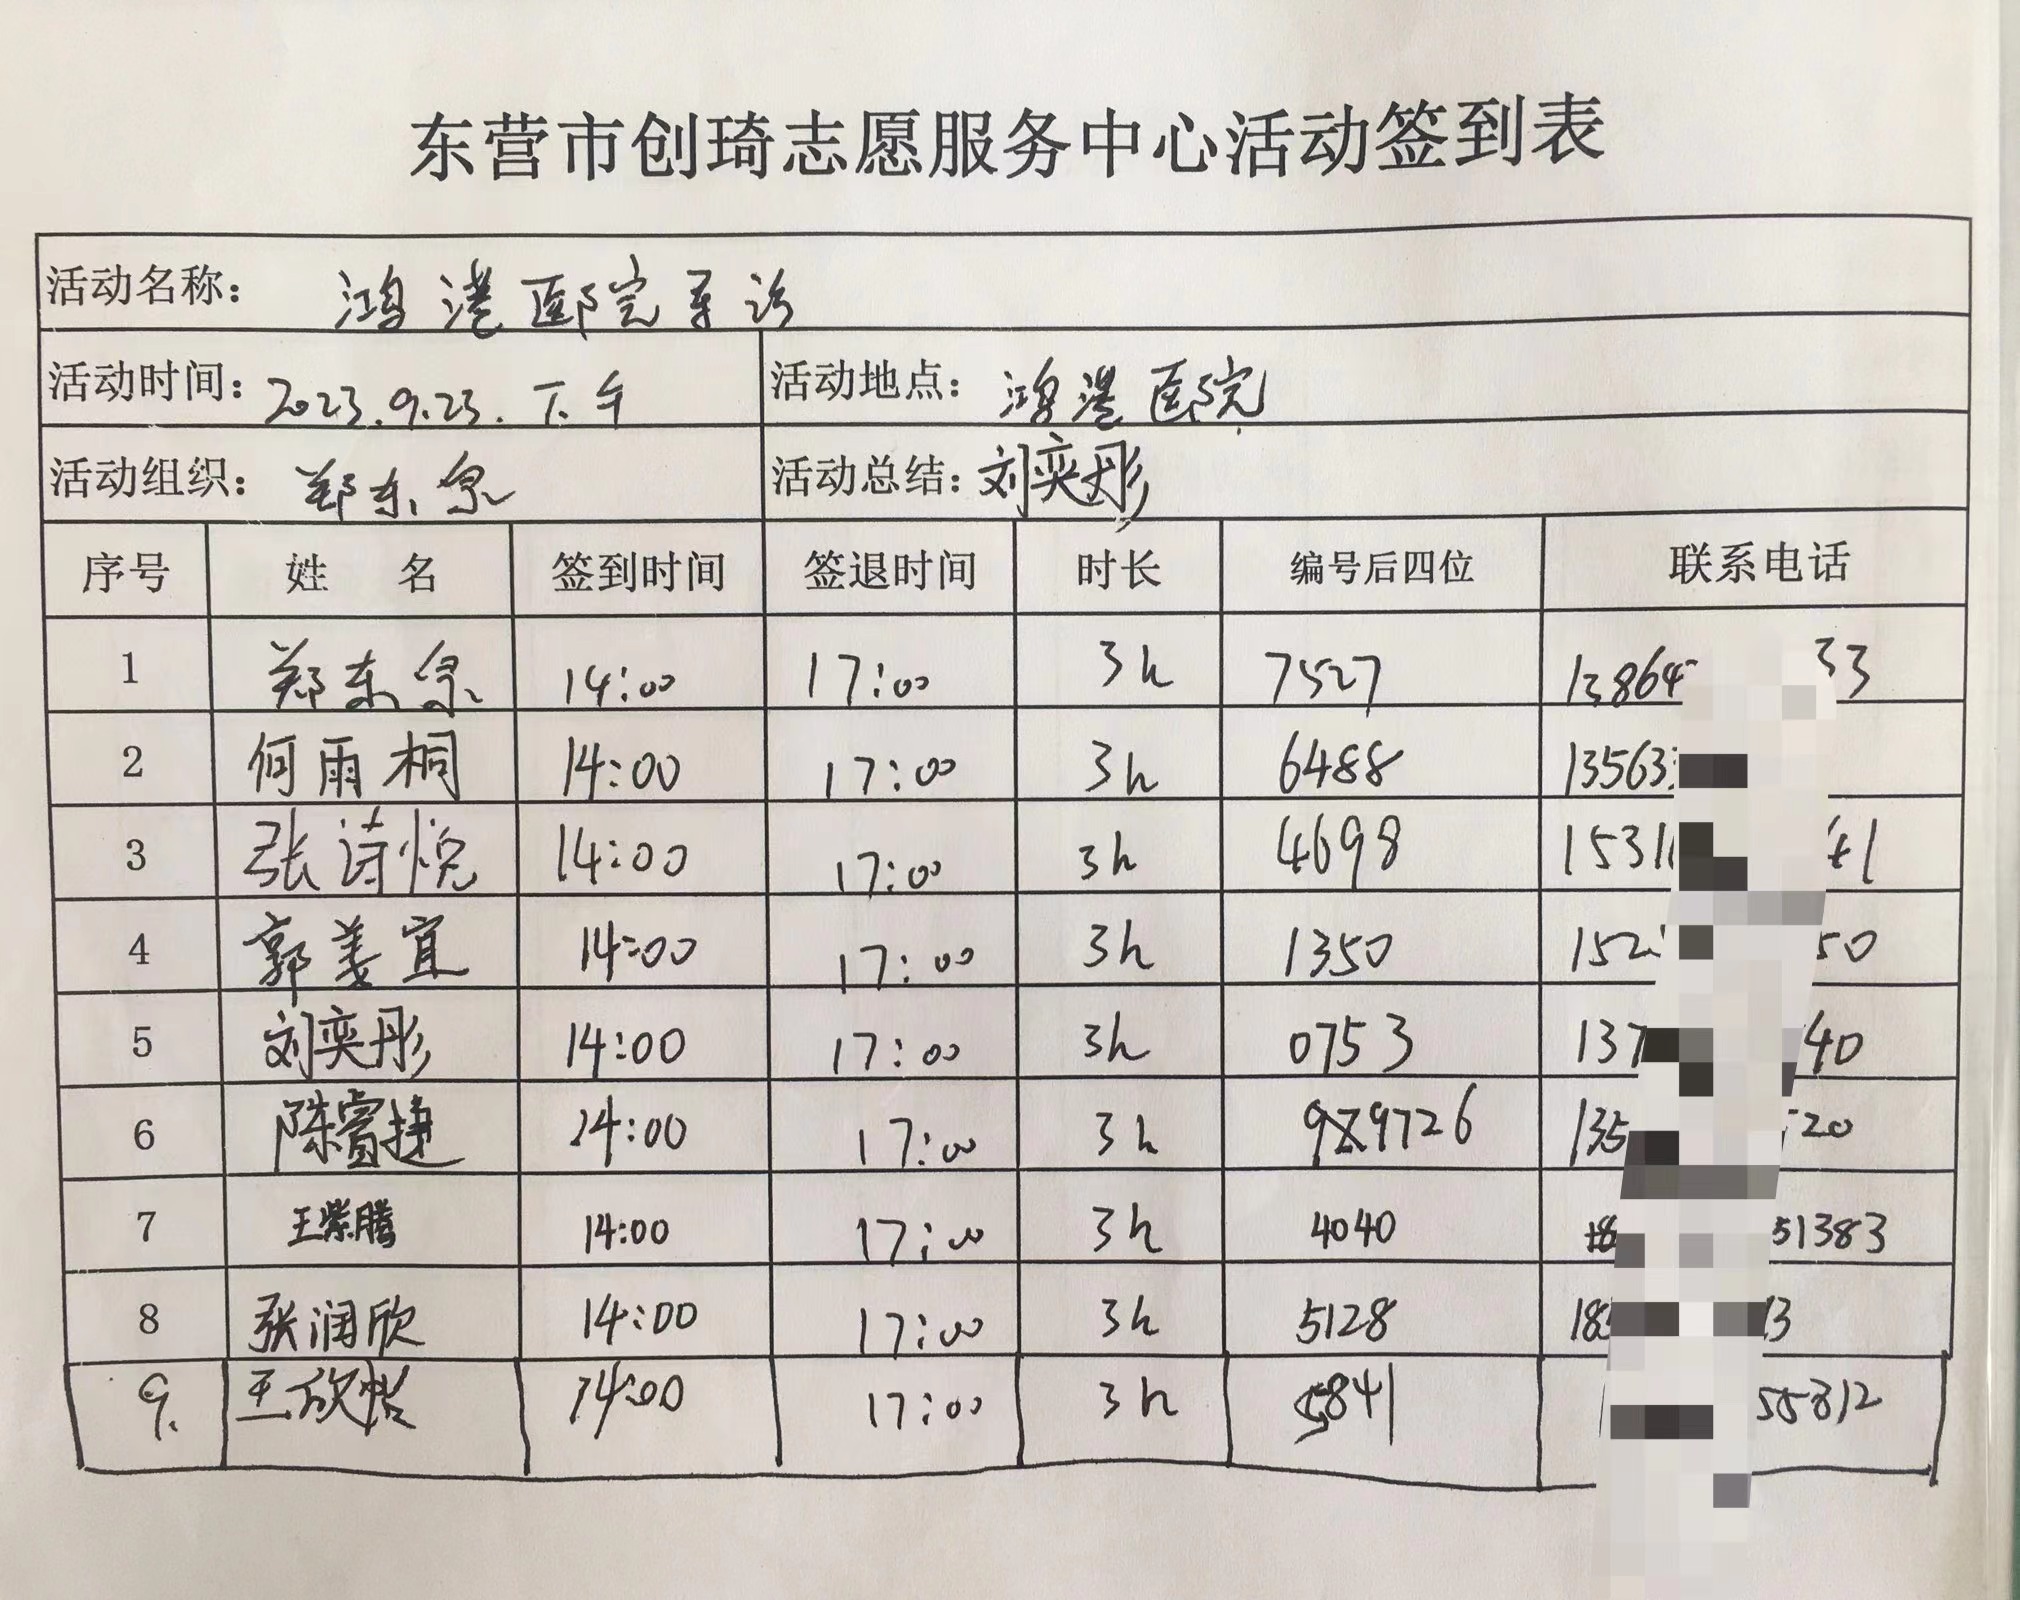 东营市创琦志愿服务中心活动签到表
活动名称： 鸿港医院导诊
活动时间： 2023.9.23.下午 活动地点： 鸿港医院
活动组织： 郑东泉 活动总结： 刘奕彤
序号 姓 名 签到时间 签退时间 时长 编号后四位 联系电话
1 郑东泉 14:00 17:00 3h 7527 13864 33
2 何雨桐 14:00 17:00 3h 6488 13563
3 张诗悦 14:00 17:00 3h 4698 1531 41
4 郭姜宜 14:00 17:00 3h 1350 152 50
5 刘奕彤 14:00 17:00 3h 0753 137 40
6 陈睿捷 14:00 17:00 3h 9726 135 20
7 王紫腾 14:00 17:00 3h 4040 18 51383
8 张润欣 14:00 17:00 3h 5128 185 13
9. 王欣怡 14:00 17:00 3h 5841 55312